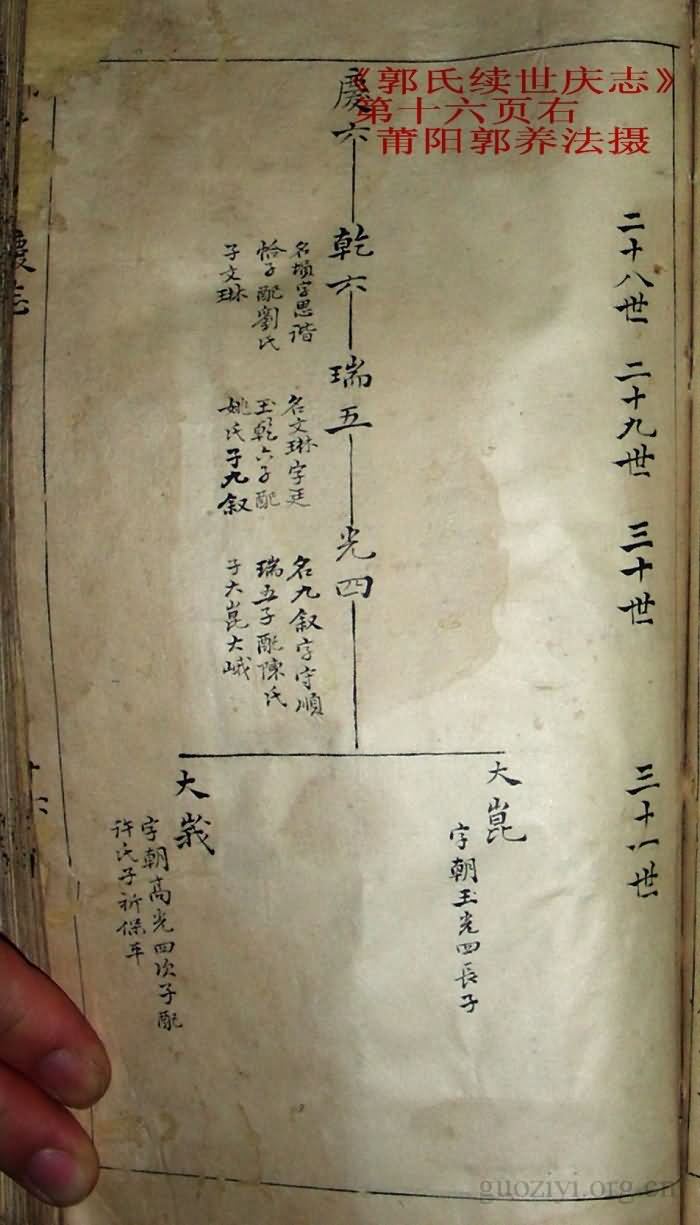 《郭氏续世庆志》
第十六页右
莆阳郭养法摄
二十八世
二十九世
三十世
三十一世
慶六
乾六
名填字思谐
恰子配劉氏
子文琳
瑞五
名文琳字廷
玉乾六子配
姚氏子九叙
光四
名九叙字守順
瑞五子配陳氏
子大崑大峨
大崑
字朝玉光四長子
大峩
字朝高光四次子配
许氏子祈保车
慶志
十六
guoziyi.org.cn